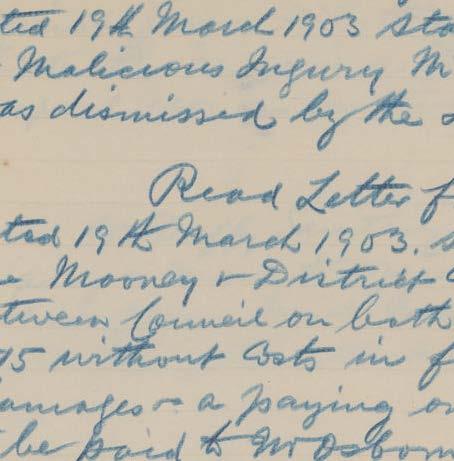 ted 19th March 1903 sta
Malicious Ingury Mr
as dismissed by the
Read Letter f
ted 19th March 1903.
Mooney & District
tween Council on both
75 without Costs in f
amages & a paying on
be paid to Mr Osborn